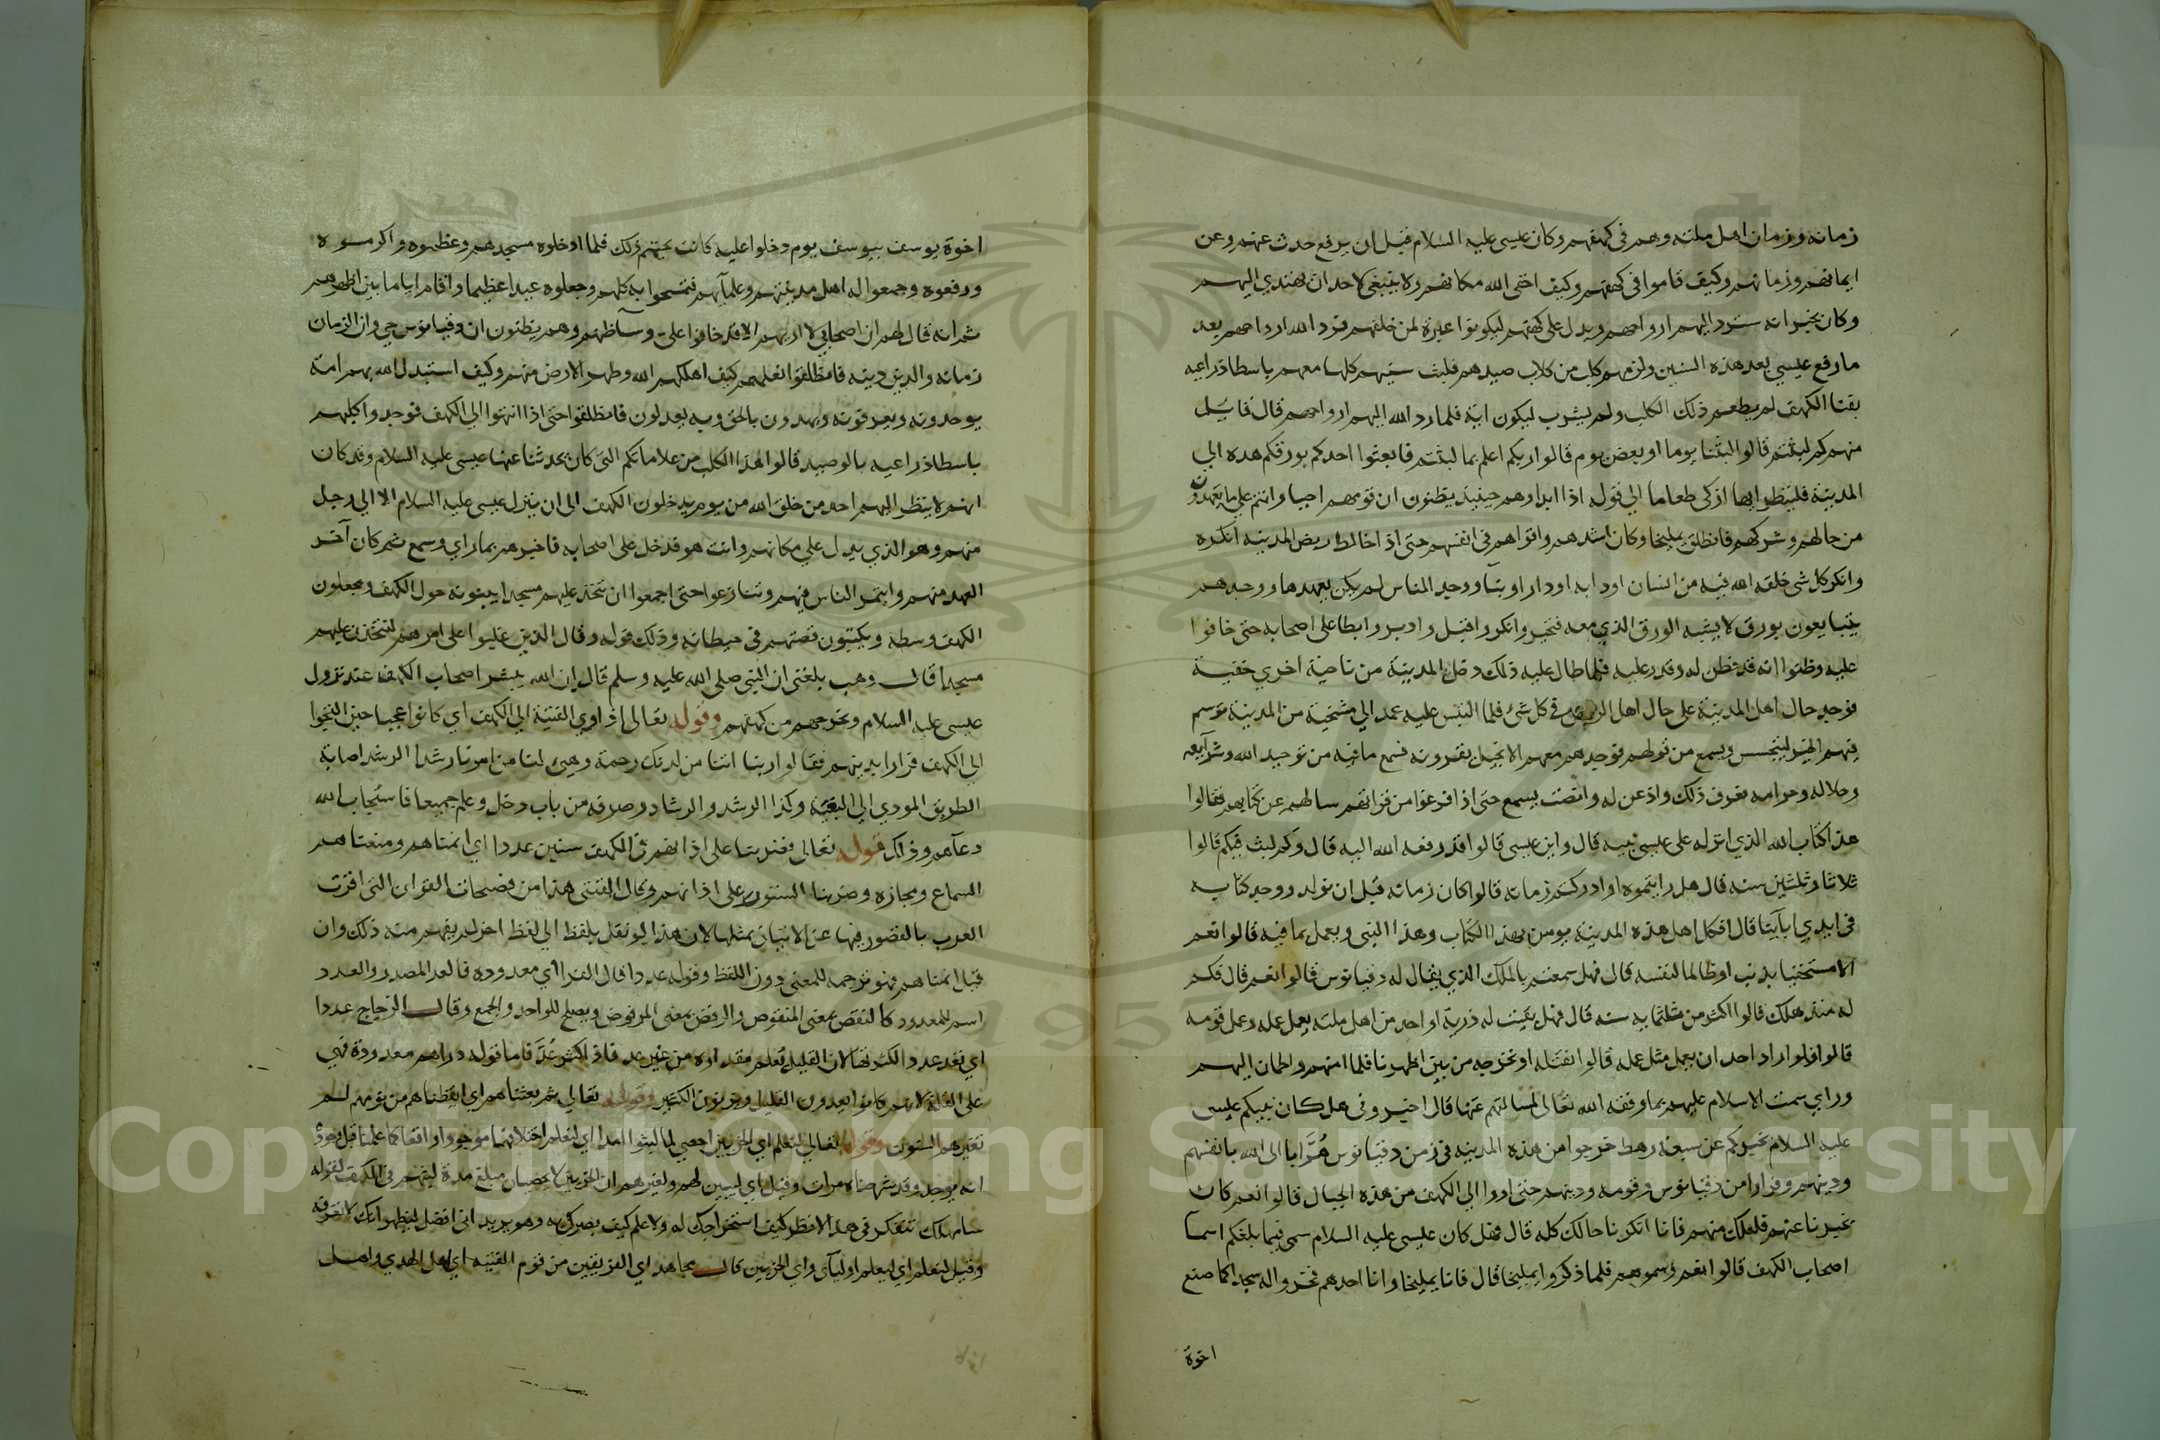 زمانه وزمان اهل ملته وهم في كهفهم وكان عيسى عليه السلام قبل ان يرفع حدث عنهم وعن
ايمانهم وزمانهم وكيف قاموا في كهفهم وكيف اخفى الله مكانهم ولا ينبغي لاحد ان يهتدي اليهم
وكان يخبر انه سترد اليهم ارواحهم ويدل على كهفهم ليكونوا عبرة لمن خلفهم فرد الله ارواحهم بعد
ما رفع عيسى بعد هذه السنين ولزمهم كلب من كلاب صيدهم فلبث سنيهم كلها معهم باسطا ذراعيه
بفنا الكهف لم يطعم ذلك الكلب ولم يشرب ليكون اية فلما رد الله اليهم ارواحهم قال قايل
منهم كم لبثتم قالوا لبثنا يوما او بعض يوم قالوا ربكم اعلم بما لبثتم فابعثوا احدكم بورقكم هذه الي
المدينة فلينظر ايها ازكى طعاما الي قوله اذا ابدا وهم حينيذ يظنون ان قومهم احيا وانتم علي ما يعهدون
من حالهم وشركهم فانطلق يمليخا وكان اشدهم واقواهم في انفسهم حتى اذا خالط ربض المدينة انكره
وانكر كل شي خلقه الله فيه من انسان او دابه او دار او بنآ ووجد الناس لم يكن يعهدها ووجدهم
يتبايعون بورق لا يشبه الورق الذي معه فتحير وانكر واقبل وادبر وابطا على اصحابه حتى خافوا
عليه وظنوا انه قد فطن له وقدر عليه فلما طال عليه ذلك دخل المدينة من ناحية اخري خفية
فوجد حال اهل المدينة على حال اهل الربض في كل شئ فلما التبس عليه عمد الي مشيخة من المدينة توسم
فيهم الخير ليتجسس ويسمع من قولهم فوجدهم معهم الانجيل يقرونه فسمع ما فيه من توحيد الله وشرآيعه
وحلاله وحرامه فعرف ذلك واذعن له وانصت يسمع حتى اذا فرغوا من قرآتهم سالهم عن كتابهم فقالوا
هذا كتاب الله الذي انزله على عيسى نبيه قال واين عيسى قالوا قد رفعه الله اليه قال وكم لبث فيكم قالوا
ثلاثا وثلثين سنه قال هل رايتموه او ادركتم زمانه قالوا كان زمانه قبل ان نولد ووجد كتابه
في ايدي اباينا قال افكل اهل هذه المدينة يومن بهذا الكتاب وهذا النبى ويعمل بما فيه قالوا نعم
الا مستخفيا بذنب او ظالما لنفسه قال فهل سمعتم بالملك الذي يقال له دقيانوس قالوا نعم قال فكم
له منذ هلك قالوا اكثر من ثلثماية سنه قال فهل بقيت له ذرية او احد من اهل ملته يعمل عمله وعمل قومه
قالوا فلو اراد احد ان يعمل مثل عمله قالوا نقتله او نخرجه من بين اظهرنا فلما امنهم واطمان اليهم
وراي سمت الاسلام عليهم بما وفقه الله تعالى لمسالتهم عنها قال اخبروني هل كان نبيكم عيسى
عليه السلام يخبركم عن سبعة رهط خرجوا من هذه المدينه في زمن دقيانوس هُرَّابا الى الله بانفسهم
ودينهم وفرارا من دقيانوس وقومه ودينهم حتى اووا الي الكهف من هذه الجبال قالوا نعم كان
يخبرنا عنهم فلعلك منهم فانا انكرنا حالك كله قال فهل كان عيسى عليه السلام سمى فيما بلغكم اسمآ
اصحاب الكهف قالوا نعم وسموهم فلما ذكروا يمليخا قال فانا يمليخا وانا احدهم فخروا له سجدا كما صنع
اخوة
اخوة يوسف بيوسف يوم دخلوا عليه كانت تحيتهم ذلك فلما ادخلوه مسجدهم وعظموه واكرموه
ورفعوه وجمعوا له اهل مدينتهم وعلمآيهم فتمسحوا به كلهم وجعلوه عيدا عظيما واقام اياما بين اظهرهم
ثم انه قال لهم ان اصحابي لا اريهم الا قد خافوا علي وسآ ظنهم وهم يظنون ان دقيانوس حي وان الزمان
زمانه والدين دينه فانطلقوا نعلمهم كيف اهلكهم الله وطهر الارض منهم وكيف استبدل الله بهم امة
يوحدونه ويعرفونه ويهدون بالحق وبه يعدلون فانطلقوا حتى اذا انتهوا الي الكهف فوجدوا كلبهم
باسطا ذراعيه بالوصيد قالوا هذا الكلب من علاماتكم التى كان يحدثنا عنها عيسى عليه السلام وقد كان
انهم لا ينظر اليهم احد من خلق الله من يوم يدخلون الكهف الى ان ينزل عيسى عليه السلام الا الي رجل
منهم وهو الذي يدل علي مكانهم وانت هو فدخل على اصحابه فاخبرهم بما راي وسمع ثم كان آخر
العهد منهم وايتمر الناس فيهم وتنازعوا حتى اجمعوا ان يتخذ عليهم مسجدا يبنونه حول الكهف ويجعلون
الكهف وسطه ويكتبون قصتهم في حيطانه وذلك قوله وقال الذين غلبوا على امرهم لنتخذن عليهم
مسجدا قال وهب بلغنى ان النبى صلى الله عليه وسلم قال ان الله يبشر اصحاب الكهف عند نزول
عيسى عليه السلام وبخروجهم من كهفهم وقوله تعالى اذ اوي الفتية الي الكهف اي كانوا عجبا حين التجوا
الي الكهف فرارا بدينهم فقالوا ربنا اتنا من لدنك رحمة وهيئ لنا من امرنا رشدا الرشد اصابة
الطريق المودي الي البغية وكذا الرشد والرشاد وصرفه من باب دخل وعلم جميعا فاستجاب الله
دعآهم وذلك قوله تعالى فضربنا على اذانهم في الكهف سنين عددا اي انمناهم ومنعناهم
السماع ومجازه وضربنا الستور على اذانهم وقال القتبى هذا من فصيحات القران التى اقرت
العرب بالقصور فيها عن الاتيان بمثلها لان هذا لو نقل بلفظ الي لفظ اخر لم يفهم منه ذلك وان
قيل انمناهم فهو ترجمه للمعنى دون اللفظ وقوله عددا قال الفرا اي معدوده فالعد المصدر والعدد
اسم للمعدود كالنقص بمعنى المنقوص والرفض بمعنى المرفوض ويصلح للواحد والجمع وقال الزجاج عددا
اي تعد عددا لكثرتها لان القليل يُعلم مقداره من غير عد فاذا كثر عُدَّ فاما قوله دراهم معدودة فهي
على القلة لانهم كانوا يعدون القليل ويزنون الكثير وقوله تعالي ثم بعثناهم اي ايقظناهم من نومهم لم
تغيرهم السنون وقوله تعالي لنعلم اي الحزبين احصي لما لبثوا امدا اي لنعلم اختلافهما موجودا واقعا كما علمنا قبل وجوده
انه يوجد وقد شرحناه مرات وقيل اي ليبين لهم ولغيرهم ان الحزبين لا يحصيان مبلغ مدة لبثهم في الكهف لقوله
وقيل لنعلم اي ليعلم اوليآى واي الحزبين قال مجاهد اي الفريقين من قوم الفتيه اي اهل الهدي واهل
Copyright © King Saud University
1957